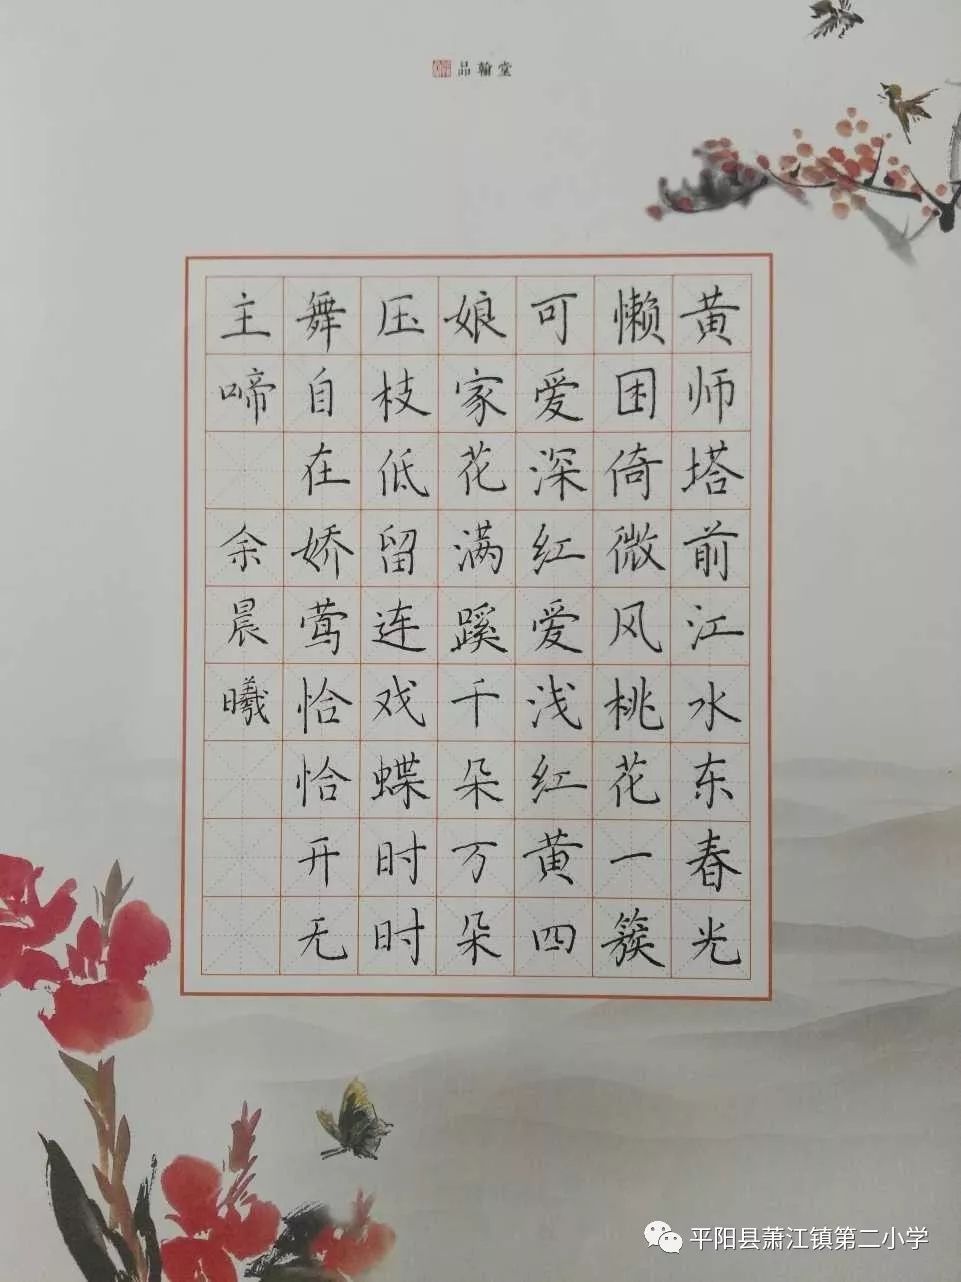 品翰堂
黄师塔前江水东春光
懒困倚微风桃花一簇
可爱深红爱浅红黄四
娘家花满蹊千朵万朵
压枝低留连戏蝶时时
舞自在娇莺恰恰开无
主啼 余晨曦
平阳县萧江镇第二小学